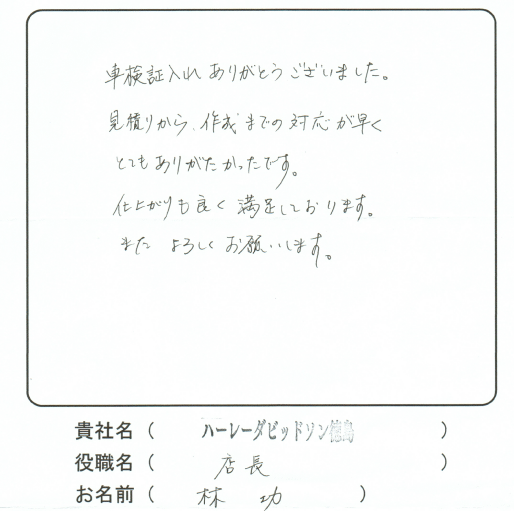 車検証入れ ありがとうございました。
見積りから、作成までの対応が早く
とてもありがたかったです。
仕上がりも良く満足しております。
また よろしくお願いします。
貴社名（ ハーレーダビッドソン徳島 ）
役職名（ 店長 ）
お名前（ 林 功 ）